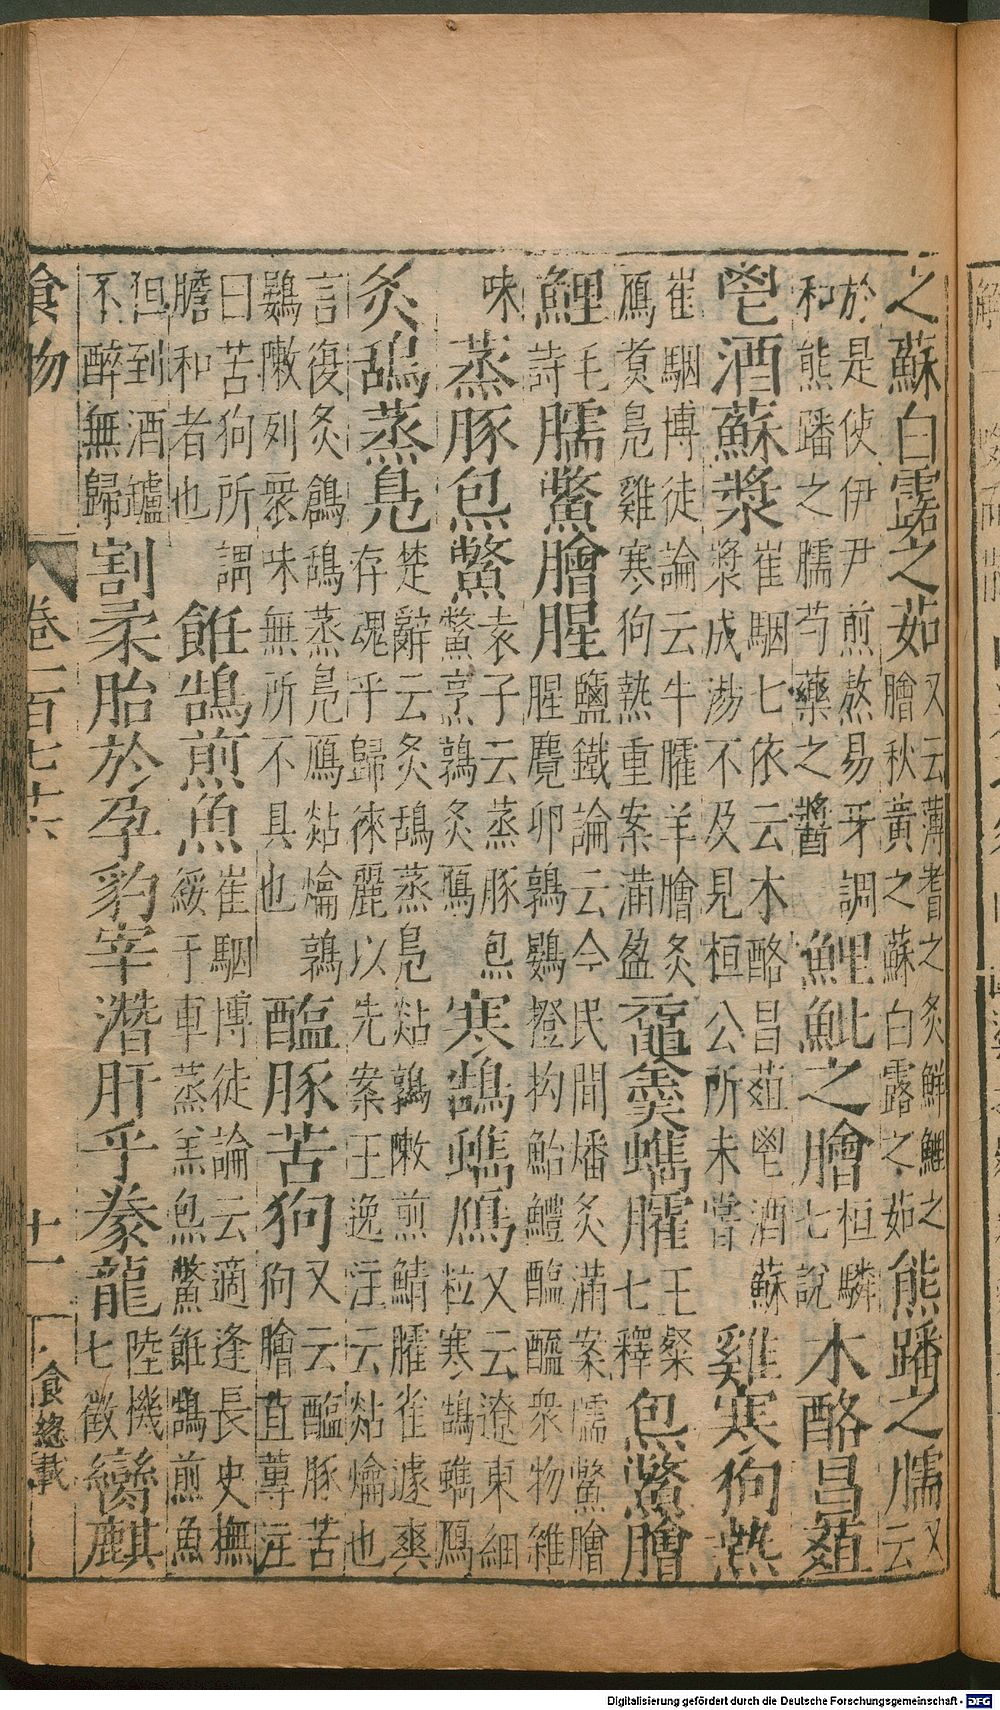 之蘇白露之茹又云薄耆之炙鮮鯉之膾秋黃之蘇白露之茹熊蹯之臑又云
於是使伊尹煎熬易牙調和熊蹯之臑芍藥之醬鯉魮之膾桓麟七說木酪昌菹
鬯酒蘇漿崔駰七依云木酪昌菹鬯酒蘇漿成湯不及見桓公所未嘗雞寒狗熱
崔駰博徒論云牛臛羊膾炙鴈煑鳧雞寒狗熱重案滿盈黿羹蠵臛王粲七釋炰鱉膾
鯉毛詩臑鱉膾腥鹽鐵論云今民間燔炙滿案臑鱉膾腥麑卵鶉鷃橙枸鮐鱧醢醯衆物雜
味蒸豚炰鱉袁子云蒸豚炰鱉烹鶉炙鴈寒鵠蠵鴈又云遼東細粒寒鵠蠵鴈
炙鴰蒸鳧楚辭云炙鴰蒸鳧煔鶉敶煎鰿臛雀遽爽存魂乎歸徠麗以先案王逸注云煔爚也
言復炙鶬鴰蒸鳧鴈煔爚鶉鷃敶列衆味無所不具也醢豚苦狗又云醢豚苦狗膾苴蓴注
曰苦狗所謂膽和者也飪鵠煎魚崔駰博徒論云適逢長史撫綏于車蒸羔炰鱉飪鵠煎魚
但到酒罏不醉無歸割柔胎於孕豹宰潛肝乎豢龍陸機七徵臠麒
食物 卷一百七十六 十一 食總載
Digitalisierung gefördert durch die Deutsche Forschungsgemeinschaft - DFG